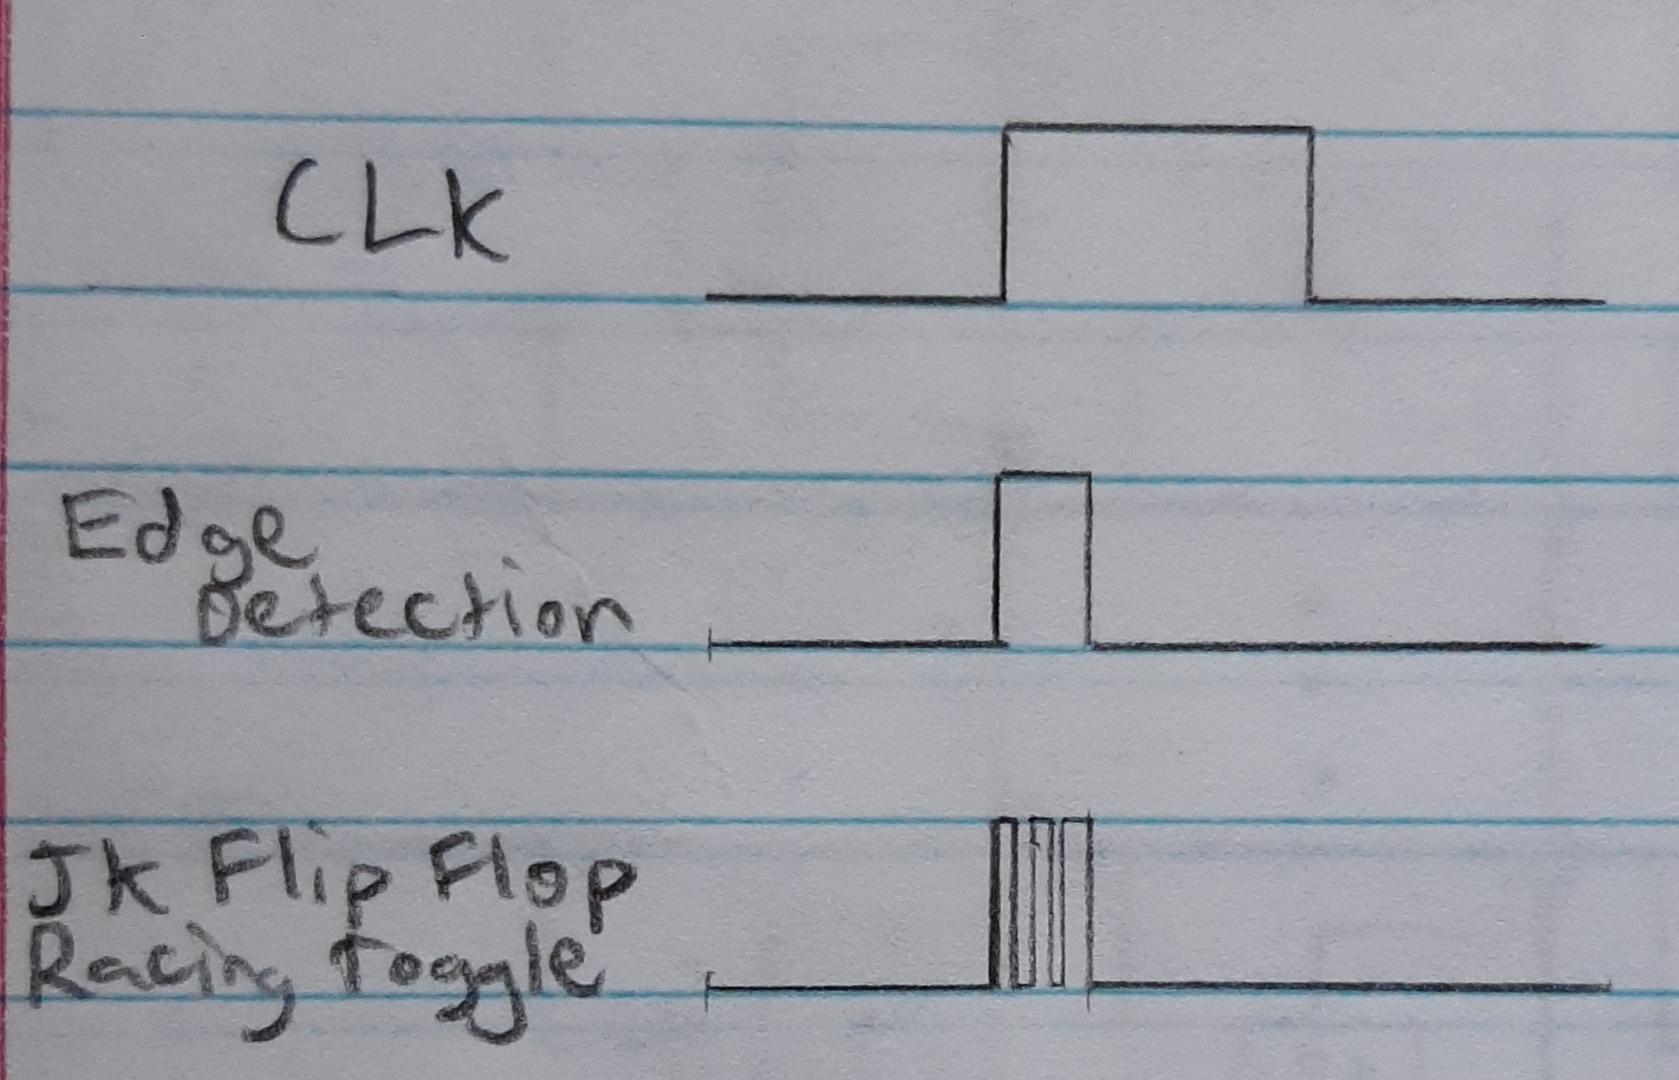 CLK
Edge
Detection
Jk Flip Flop
Racing Toggle